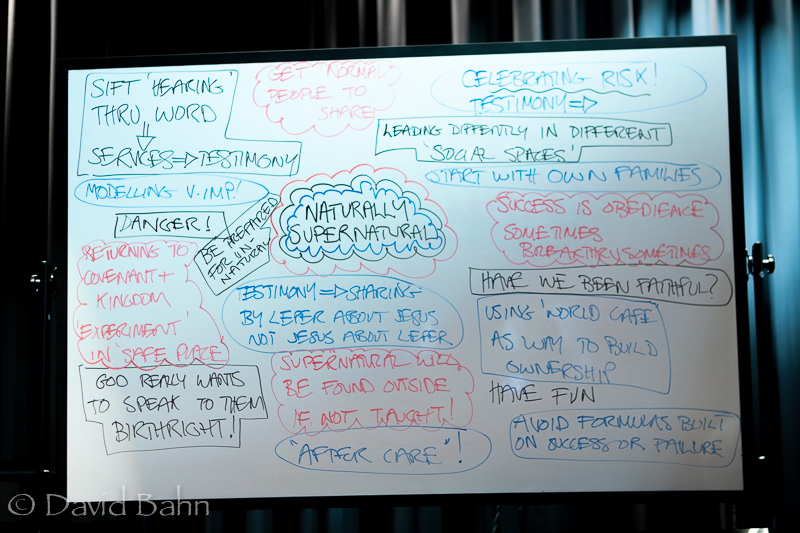 SIFT 'HEARING'
THRU WORD
SERVICES⇒TESTIMONY
GET 'NORMAL'
PEOPLE TO
SHARE
CELEBRATING RISK!
TESTIMONY⇒
LEADING DIFFENTLY IN DIFFERENT
'SOCIAL SPACES'
START WITH OWN FAMILIES
MODELLING V.IMP!
DANGER!
BE PREPARED
FOR UN
NATURAL
NATURALLY
SUPERNATURAL
SUCCESS IS OBEDIENCE
SOMETIMES
BREAKTHRU SOMETIMES
RETURNING TO
COVENANT +
KINGDOM
EXPERIMENT
IN 'SAFE PLACE'
HAVE WE BEEN FAITHFUL?
TESTIMONY ⇒ SHARING
BY LEPER ABOUT JESUS
NOT JESUS ABOUT LEPER
USING 'WORLD CAFE'
AS WAY TO BUILD
OWNERSHIP
SUPERNATURAL WILL
BE FOUND OUTSIDE
IF NOT TAUGHT!
GOD REALLY WANTS
TO SPEAK TO THEM
BIRTHRIGHT!
HAVE FUN
AVOID FORMULAS BUILT
ON SUCCESS OR FAILURE
"AFTER CARE"!
© David Bahn